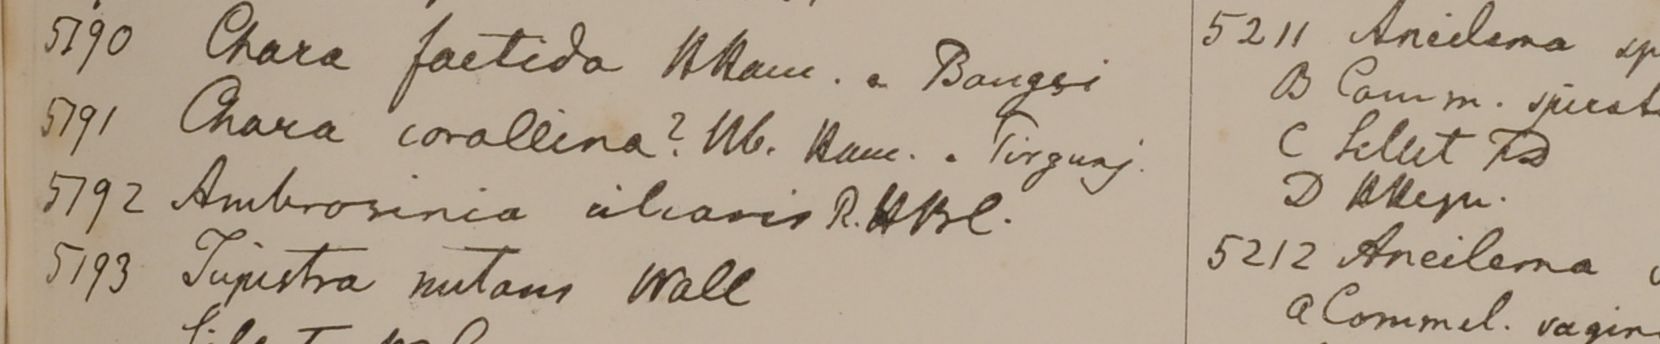 5190 Chara faetida HHam. a Bangsi
5191 Chara corallina? Hb. Ham. a Tirgunj.
5192 Ambrosinia ciliaris R. HBC.
5193 Tupistra nutans Wall
Silet
5211 Aneilema sp
B Comm. spirat
C Sillet FD
D HHeyn.
5212 Aneilema
a Commel. vagin